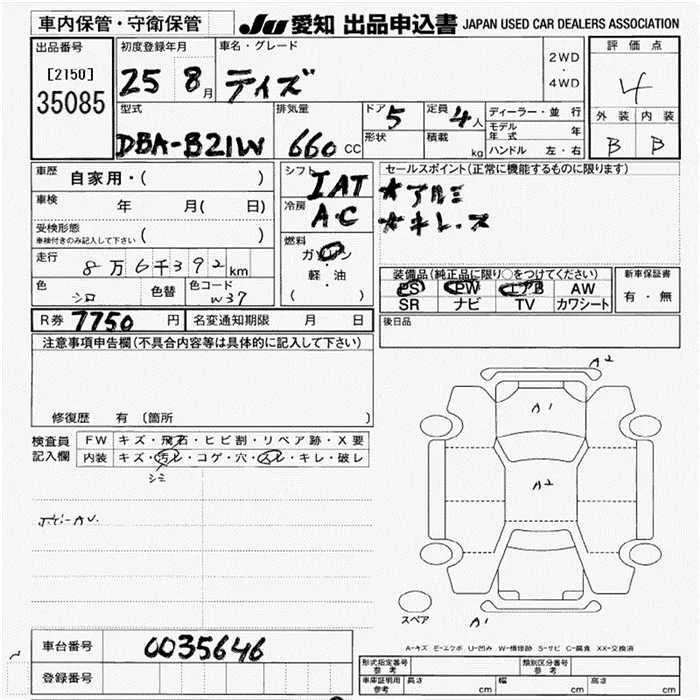 車内保管・守衛保管
JU 愛知 出品申込書 JAPAN USED CAR DEALERS ASSOCIATION
出品番号
[2150]
35085
初度登録年月
25 8月
車名・グレード
デイズ
2WD
・
4WD
評価点
4
外装 内装
B B
型式
DBA-B21W
排気量
660 CC
ドア
5
形状
定員
4人
積載
kg
ディーラー・並行
モデル年式 年
ハンドル 左・右
車歴
自家用・( )
車検
年 月( 日)
受検形態
車検付きのみ記入して下さい ( )
走行
8万6千392km
色
シロ
色替
色コード
W37
シフト
IAT
冷房
A・C
燃料
ガソリン
・
軽・油
( )
セールスポイント(正常に機能するものに限ります)
★アルミ
★キレース
装備品(純正品に限り○をつけてください)
PS PW エアB AW
SR ナビ TV カワシート
新車保証書
有・無
R券 7750 円
名変通知期限 月 日
後日品
注意事項申告欄(不具合内容等は具体的に記入して下さい)
修復歴 有 (箇所 )
検査員
記入欄
FW キズ・飛石・ヒビ割・リペア跡・X要
内装 キズ・汚レ・コゲ・穴・スレ・キレ・破レ
シミ
A2
A1
A2
スペア
A1
A-キズ E-エクボ U-凹み W-補修跡 S-サビ C-腐食 XX-交換済
車台番号
0035646
登録番号
形式指定番号
参考
類別区分番号
参考
車庫証明用
参考
長さ cm 幅 cm 高さ cm